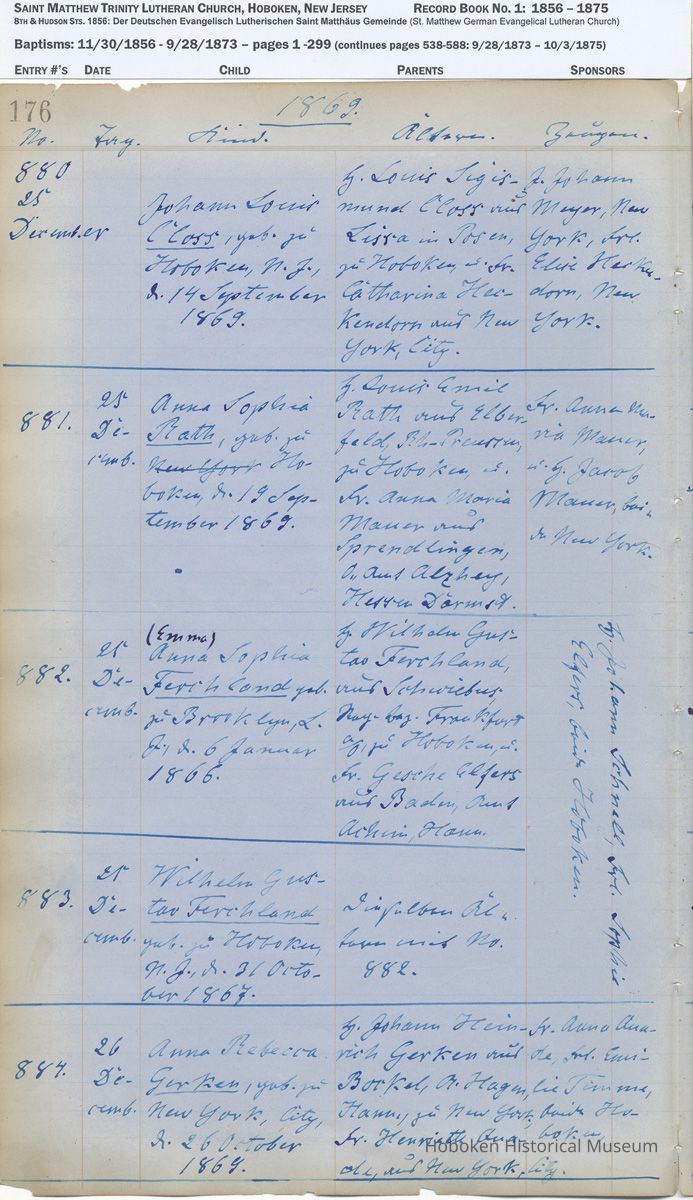 SAINT MATTHEW TRINITY LUTHERAN CHURCH, HOBOKEN, NEW JERSEY RECORD BOOK NO. 1: 1856 – 1875
8TH & HUDSON STS. 1856: Der Deutschen Evangelisch Lutherischen Saint Matthäus Gemeinde (St. Matthew German Evangelical Lutheran Church)
Baptisms: 11/30/1856 - 9/28/1873 – pages 1 -299 (continues pages 538-588: 9/28/1873 – 10/3/1875)
ENTRY #'S DATE CHILD PARENTS SPONSORS
176 1869.
No. Tag. Kind. Ältern. Zeugen.
880
25
December
Johann Louis
Closs, geb. zu
Hoboken, N. J.,
d. 14 September
1869.
H. Louis Sigis-
mund Closs aus
Lissa in Posen,
zu Hoboken, u. Fr.
Catharina Hec-
kendorn aus New
York, City.
Johann
Meyer, New
York, Frl.
Elise Hecken-
dorn, New
York.
881.
25
De-
cemb.
Anna Sophia
Rath, geb. zu
New York Ho-
boken, d. 19 Sep-
tember 1869.
H. Louis Emil
Rath aus Elber-
feld, Rh-Preussen,
zu Hoboken, u.
Fr. Anna Maria
Mauer aus
Sprendlingen,
Amt Alzhey,
Hessen Darmst.
Fr. Anna Ma-
ria Mauer,
u. H. Jacob
Mauer, bei-
de New York.
882.
25
De-
cemb.
(Emma)
Anna Sophia
Ferchland geb.
zu Brooklyn, L.
I., d. 6 Januar
1866.
H. Wilhelm Gus-
tav Ferchland,
aus Schwiebus
Frankfurt
a/O, zu Hoboken, u.
Fr. Gesche Elfers
aus Baden, Amt
Achim, Hann.
H. Johann Schnell, Frl. Sophie
Elfers, beide Hoboken.
883.
25
De-
cemb.
Wilhelm Gus-
tav Ferchland
geb. zu Hoboken,
N. J., d. 31 Octo-
ber 1867.
Dieselben Äl-
tern mit No.
882.
884.
26
De-
cemb.
Anna Rebecca
Gerken, geb. zu
New York, City,
d. 26 October
1869.
H. Johann Hein-
rich Gerken aus
Bockel, A. Hagen,
Hann., zu New York,
Fr. Henriette
aus New York, City.
Fr. Anna
Frl. Emi-
lie Timme,
beide Ho-
boken
Hoboken Historical Museum